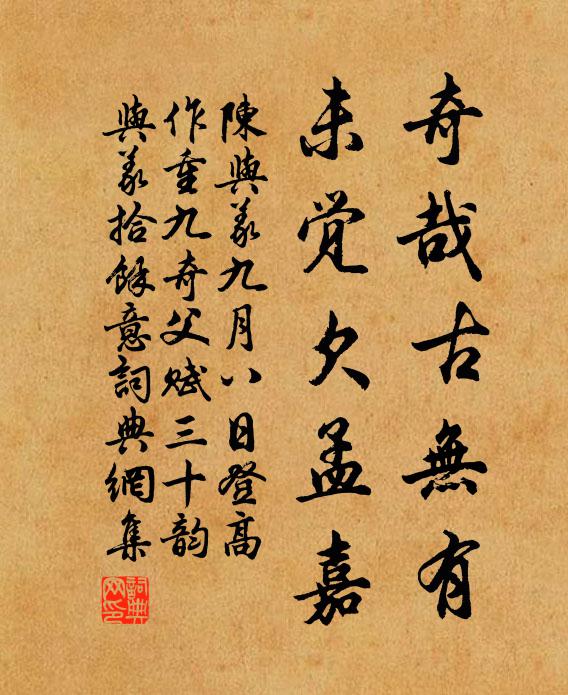 奇哉古無有
未觉欠孟嘉
陳與义九月八日登高
作重九奇父赋三十韵
與义拾餘意詞典網集
詞典网印